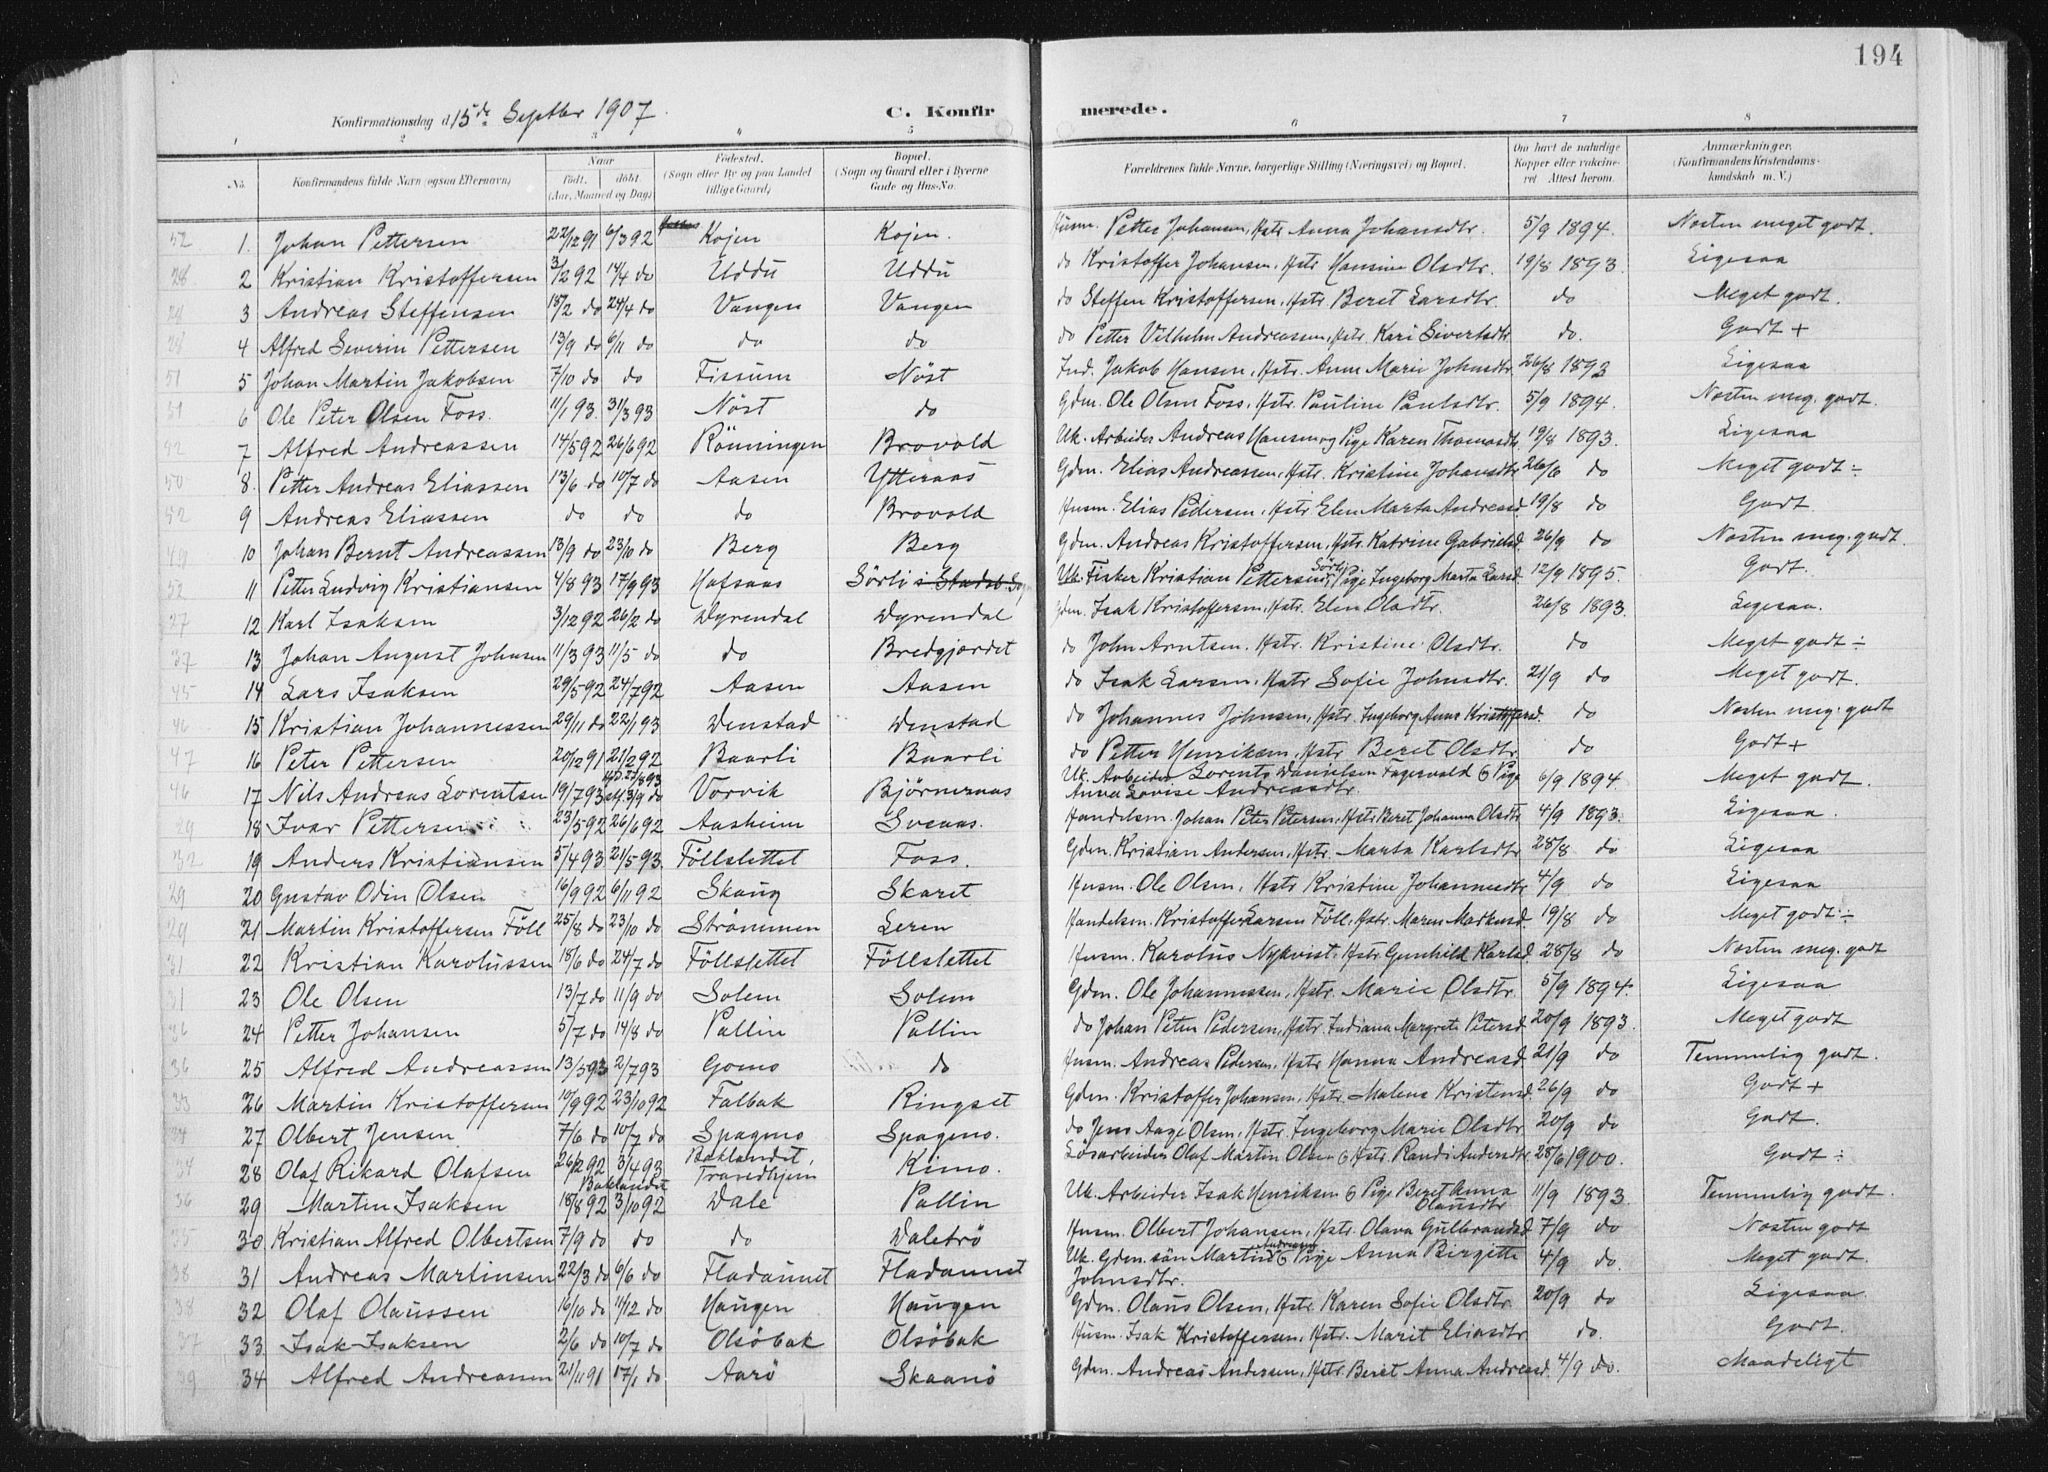 194
Konfirmationsdag d. 15de Septbr 1907.
C. Konfirmerede.
1 2 3 4 5 6 7 8
No. Konfirmandens fulde Navn (ogsaa Efternavn) Naar født, døbt. (Aar, Maaned og Dag) Fødested. (Sogn eller By og paa Landet tillige Gaard) Bopæl. (Sogn og Gaard eller i Byerne Gade og Hus-No. Forældrenes fulde Navne, borgerlige Stilling (Næringsvei) og Bopæl. Om havt de naturlige Kopper eller vaccineret Attest herom. Anmærkninger. (Konfirmandens Kristendomskundskab m. V.)
52 1. Johan Pettersen 22/12 91 6/3 92 Kojen Kojen. Husm. Petter Johansen, Hstr. Anna Johansdtr. 5/9 1894. Næsten meget godt.
28 2 Kristian Kristoffersen 3/2 92 14/4 do Uddu Uddu do Kristoffer Johansen, Hstr. Hansine Olsdtr. 19/8 1893. Ligesaa
29 3 Andreas Steffensen 15/2 do 24/4 do Vangen Vangen do Steffen Kristoffersen, Hstr. Beret Larsdtr. do Meget godt.
28 4 Alfred Severin Pettersen 13/9 do 6/11 do do do do Petter Vilhelm Andreassen, Hstr. Kari Sivertsdtr. do. Godt +
51 5 Johan Martin Jakobsen 7/10 do do Fissum Nöst Ind. Jakob Hansen, Hstr. Anne Marie Johnsdtr. 26/8 1893 Ligesaa
51 6 Ole Peter Olsen Foss. 11/1 93. 31/3 93 Nöst do Gdm. Ole Olsen Foss, Hstr. Pauline Paulsdtr. 5/9 1894. Næsten meg. godt.
52 7 Alfred Andreassen 14/5 92 26/6 92 Rönningen Brovold Uk. Arbeider Andreas Hansen og Pige Karen Thomasdtr 19/8 1893. Ligesaa
50 8. Petter Andreas Eliassen 13/6 do 10/7 do Aasen Ytteraas Gdm. Elias Andreassen, Hstr. Kristine Johansdtr 26/6 do Meget godt ÷
52 9 Andreas Eliassen do do do Brovold Husm. Elias Pedersen, Hstr Elen Marta Andreasd. 19/8 do Godt
49 10 Johan Bernt Andreassen 13/9 do 23/10 do Berg Berg Gdm. Andreas Kristoffersen, Hstr. Katrine Gabrielsd. 26/9 do Næsten meg. godt.
52 11 Petter Ludvig Kristiansen 4/8 93 17/9 93 Hafsaas Sörli i Stadsb. Uk. Fisker Kristian Pettersen Sörli, Pige Ingeborg Marta Larsd. 12/9 1895. Godt.
27 12 Karl Isaksen 3/12 92 26/2 do Dyrendal Dyrendal Gdm. Isak Kristoffersen, Hstr. Elen Olsdtr. 26/8 1893. Ligesaa.
37 13 Johan August Johnsen 11/3 93 11/5 do do Bredgjærdet do John Arntsen, Hstr. Kristine Olsdtr. do Meget godt ÷
45 14 Lars Isaksen 29/5 92 24/7 92 Aasen Aasen do Isak Larsen, Hstr Sofie Johnsdtr. 21/9 do Meget godt.
46 15 Kristian Johannessen 29/11 do 22/1 93 Denstad Denstad do Johannes Johnsen, Hstr. Ingeborg Anna Kristoffersd. do Næsten meg. godt
47 16 Peter Pettersen 20/12 91 21/2 92 Baarli Baarli do Petter Henriksen, Hstr. Beret Olsdtr do Godt +
46 17 Nils Andreas Lorentsen 19/7 93 3/9 do Vorvik Björnernaas Uk. Arbeider Lorents Danielsen Fagervold & Pige Anna Lovise Andreasdtr. 6/9 1894. Meget godt.
29 18 Ivar Pettersen 23/5 92 26/6 92 Aasheim Sveaas. Handelsm. Johan Peter Petersen, Hstr. Beret Johanna Olsdtr 4/9 1893. Ligesaa.
32 19 Anders Kristiansen 5/4 93 21/5 93. Föllslettet Foss. Gdm. Kristian Andersen, Hstr. Marta Karlsdtr 28/8 do Ligesaa
29 20 Gustav Odin Olsen 16/9 92 6/11 92 Skaug Skaret Husm. Ole Olsen, Hstr Kristine Johannesdtr 4/9 do Ligesaa
29 21 Martin Kristoffersen Föll 25/8 do 23/10 do Strömmen Leren Handelsm. Kristoffer Larsen Föll, Hstr. Maren Markusd. 19/8 do Meget godt ÷
31 22 Kristian Karolussen 18/6 do 24/7 do Föllslettet Föllslettet Husm. Karolus Nykvist, Hstr Gunhild Karlsd. 28/8 do Næsten meg. godt
31 23 Ole Olsen 13/7 do 11/9 do Solem Solem Gdm. Ole Johannessen, Hstr. Marie Olsdtr. 5/9 1894. Ligesaa
36 24 Petter Johansen 5/7 do 14/8 do Pallin Pallin do Johan Peter Pedersen, Hstr. Indiana Margrete Petersd. 20/9 1893. Meget godt
36 25 Alfred Andreassen 13/5 93 2/7 93 Gomo do Husm. Andreas Pedersen, Hstr Hanna Andreasd. 21/9 do Temmelig godt.
33 26 Martin Kristoffersen 10/9 92 23/10 92 Falbak Ringset Gdm. Kristoffer Johansen, Hstr. Malena Kristensd. 26/9 do Godt +
34 27 Olbert Jensen 7/6 do 10/7 do Spagmo Spagmo. do Jens Aage Olsen, Hstr. Ingeborg Marie Olsdtr 20/9 do Godt.
34 28 Olaf Rikard Olafsen 26/12 92 3/4 93 Baklandet Baklandet, Trondhjem Kimo. Lösarbeider Olaf Martin Olsen & Hstr. Randi Andersdtr 28/6 1900. Godt ÷
36 29 Martin Isaksen 18/8 92 3/10 92 Dale Pallin Uk. Arbeider Isak Henriksen & Pige Beret Anna Olausdtr 11/9 1893. Temmelig godt.
35 30 Kristian Alfred Olbertsen 7/9 do do do Daletrö Husm. Olbert Johansen, Hstr. Olava Gulbrandsd. 7/9 do Næsten godt
38 31 Andreas Martinsen 22/3 do 6/6 do Fladaunet Fladaunet Uk. Gdm. sön Martin Andreassen & Pige Anna Birgitte Johnsdtr. 4/9 do. Meget godt.
38 32 Olaf Olaussen 16/10 do 11/12 do Haugen Haugen Gdm. Olaus Olsen, Hstr. Karen Sofie Olsdtr. 20/9 do Ligesaa
37 33 Isak Isaksen 2/6 do 10/7 do Olsöbak Olsöbak Husm. Isak Kristoffersen, Hstr. Marit Eliasdtr do. Godt.
39 34 Alfred Andreassen 21/11 91 17/1 do Aarö Skaanö Gdm. Andreas Andersen, Hstr. Beret Anna Andreasd. 4/9 do. Maadeligt